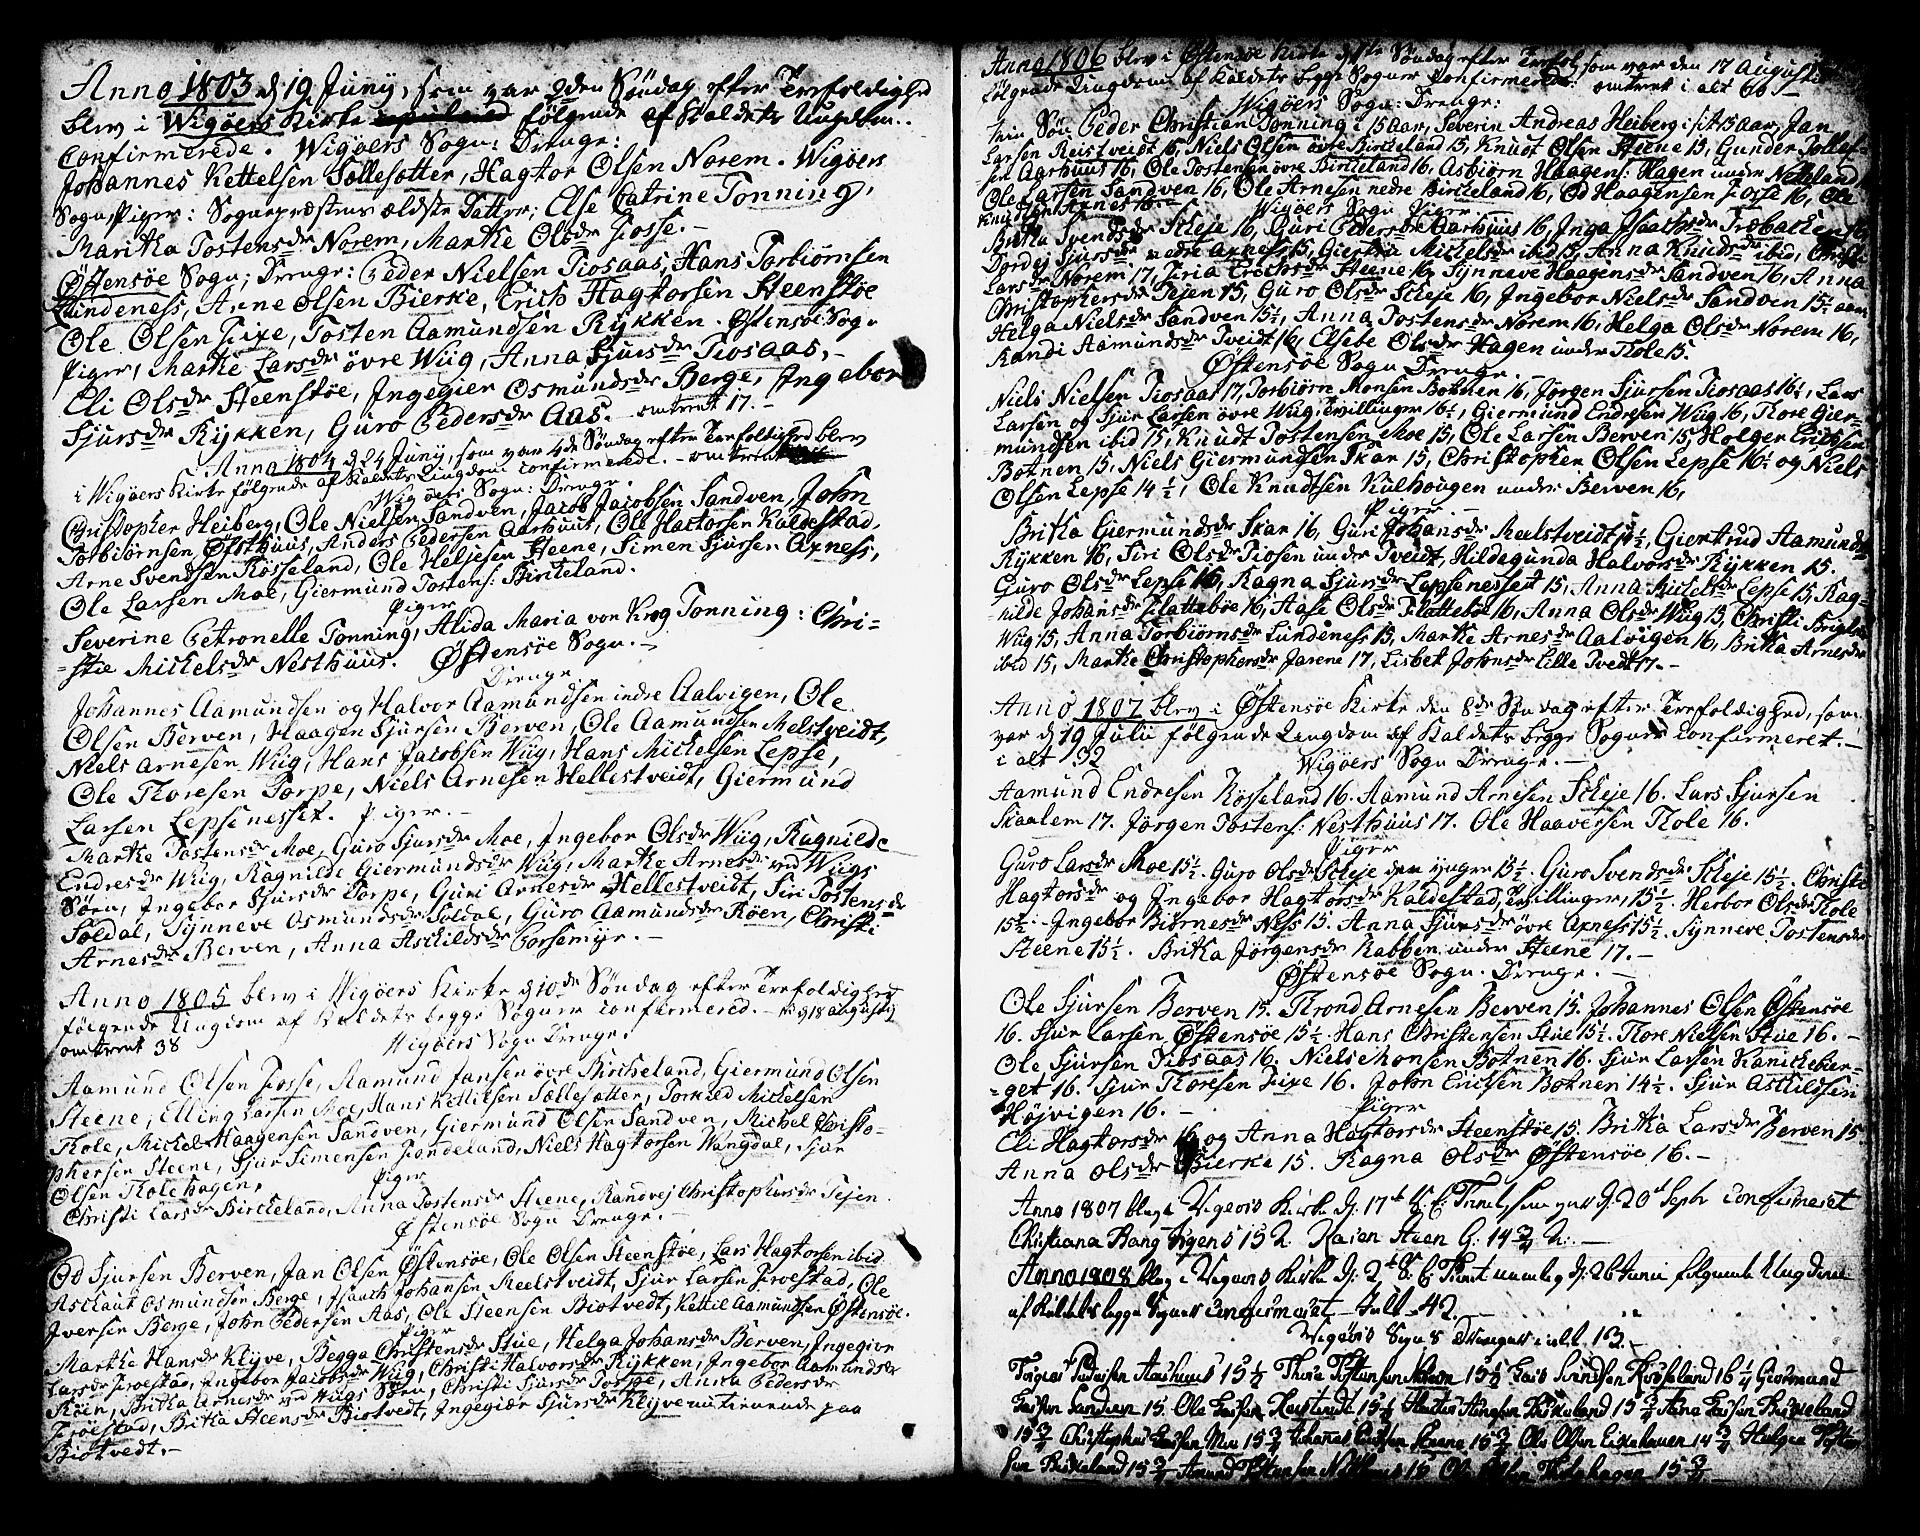 Anno 1803 d 19 Juny, som var 2den Söndag efter Trefoldighed
blev i Wigöers Kirke følgende af Kaldets Ungdom
Confirmerede. Wigöers Sogn: Drenge:
Johannes Kettelsen Sollesøtter, Hagtor Olsen Norem. Wigöers
Sogn, Piger: Sognepræstens ældste Datter; Else Catrine Tonning,
Maritha Tostensdr Norem, Marthe Olsdr Fosse.-
Østensöe Sogn; Drenge: Peder Nielsen Tiosaas, Hans Torbiörnsen
Lundeness, Arne Olsen Bierke, Erich Hagtorsen Steenstöe
Ole Olsen Fixe, Tosten Aamundsen Rykken. Østensöe Sogn
Piger, Marthe Larsdr övre Wiig, Anna Sjursdr Tiosaas,-
Eli Olsdr Steenstöe, Ingegier Osmundsdr Berge, Ingebor
Sjursdr Rykken, Guro Pedersdr Aas. - omtrent 17.-
Anno 1804 d 24 Juny, som var 4de Söndag efter Trefoldighed blev
i Wigöers Kirke følgende af Kaldets Ungdom confirmerede. - omtrent
Wigöers Sogn: Drenge.
Christopher Heiberg, Ole Nielsen Sandven, Jacob Jacobsen Sandven, John
Torbiörnsen, Østhuus, Anders Pedersen Aarhuus, Ole Hactorsen Kaldestad,
Arne Svendsen Rösseland, Ole Heljesen Steene, Simen Sjursen Axness,
Ole Larsen Moe, Giermund Tostens: Birkeland.
Piger
Severine Petronelle Tonning, Alida Maria von Krog Tonning: Chri-
=stie Mickelsdr Nesthuus. Østensöe Sogn.-
Drenge
Johannes Aamundsen og Halvor Aamundsen indre Aalvigen, Ole
Olsen Berven, Haagen Sjursen Berven, Ole Aamundsen Melstveidt,
Niels Arnesen Wiig, Hans Jacobsen Wiig, Hans Mickelsen Lepse,
Ole Thoresen Torpe, Niels Arnesen Hellestveidt, Giermund
Larsen Lepsenesset. Piger.-
Marthe Tostensdr Moe, Guro Sjursdr Moe, Ingebor Olsdr Wiig, Ragnilde
Endresdr Wiig, Ragnilde Giermundsdr Wiig, Marthe Arnesdr ved Wiigs
Søen, Ingebor Sjursdr Torpe, Guri Arnesdr Hellestveidt, Siri Tostensdr
Soldal, Synneve Osmundsdr Soldal, Guro Aamundsdr Röen, Christi
Arnesdr Berven, Anna Askildsdr Porsemyr.-
Anno 1805 blev i Wigöers Kirke d 10de Söndag efter Trefoldighed
følgende Ungdom af Kaldets begge Sogner confirmered. - d 18 augusty
omtrent 38 Wigöers Sogn Drenge.
Aamund Olsen Fosse, Aamund Jansen övre Birckeland, Giermund Olsen
Steene, Elling Larsen Moe, Hans Kettelsen Sollesøtter, Torkild Mickelsen
Thole, Mickel Haagensen Sandven, Giermund Olsen Sandven, Michel Christo-
phersen Steene, Sjur Simensen Londeland, Niels Hagtorsen Wangdal, Sjur
Olsen Tholehagen. Piger
Christi Larsdr Birckeland, Anna Tostensdr Steene, Randvej Christophersdr Tejen.
Østensöe Sogn Drenge.-
Od Sjursen Berven, Jan Olsen Østensöe, Ole Olsen Steenstöe, Lars Hagtorsen ibid.
Asclaut Osmundsen Berge, Isaach Johansen Meelstveidt, Sjur Larsen Froestad, Ole
Iversen Berge, John Pedersen Aas, Ole Steensen Biotvedt, Kettil Aamundsen Østensöe.
Piger
Marthe Hansdr Klyve, Begga Christensdr Stue, Helga Johansdr Berven, Ingegier
Larsdr Froestad, Ingebor Jacobsdr Wiig, Christi Halvorsdr Rykken, Ingebor Aamundsdr
Röen, Britha Arnesdr ved Wiigs Söen, Christi Sjursdr Torpe, Anna Pedersdr
Froestad, Britha Steensdr Biotvedt, Ingegiær Sjursdr Klyve paa
Biotvedt.-
Anno 1806 blev i Østensöe Kirke Söndag efter Trefol, som var den 17 Augusti
følgende Ungdom af Kaldets begge Sogner Confirmerede: omtrent i alt 60.-
Wigöers Sogn: Drenge:
Min Sön Peder Christian Tonning i 15 Aar, Severin Andreas Heiberg i sit 15 Aar, Jan
Larsen Reistveidt 16, Niels Olsen övre Birckeland 15, Knudt Olsen Steene 15, Gunder Tollef-
sen Aarhuus 16, Ole Tostensen övre Birckeland 16, Asbiörn Haagens: Hagen under Netteland
Ole Larsen Sandven 16, Ole Arnesen nedre Birckeland 16, Od Haagensen Fosse 16, Ole
Wigöers Sogn Piger
Britha Svendsdr Skeje 16, Guri Pedersdr Aarhuus 16, Inga Isaachsdr Træbacken
Dordej Sjursdr nedre Axness 15, Giertru Mickelsdr ibid 15, Anna Knudsdr ibid, Christi
Larsdr Norem 17, Siria Erichsdr Steene 16, Synneve Haagensdr Sandven 16, Anna
Christophersdr Tejen 15, Guro Olsdr Skeje 16, Ingebor Nielsdr Sandven 15½ aar
Helga Nielsdr Sandven 15½, Anna Tostensdr Norem 16, Helga Olsdr Norem 16,
Randi Aamundsdr Tveidt 16, Elsebe Olsdr Hagen under Thole 15.
Østensöe Sogn Drenge.-
Niels Nielsen Tiosaas 17, Torbiörn Monsen Bothnen 16, Jörgen Sjursen Tiosaas 16½, Lars
Larsen og Sjur Larsen övre Wiig, Tvillinger 16½, Giermund Endresen Wiig 16, Thore Gier-
mundsen ibid 15, Knudt Tostensen Moe 15, Ole Larsen Berven 15, Holger Erichsen
Botnen 15, Niels Giermundsen Skar 15, Christopher Olsen Lepse 16½ og Niels
Olsen Lepse 14½, Ole Knudtsen Kulhougen under Berven 16,
Piger.-
Britha Giermundsdr Skar 16, Guri Johansdr Meelstveidt, Giertrud Aamundsdr
Rykken 16, Siri Olsdr Tiosen under Tveidt, Hildegunda Halvorsdr Rykken 15.
Guro Olsdr Lepse 16, Ragna Sjursdr Lepsenesset 15, Anna Mickelsdr Lepse 15, Rag-
nilde Johansdr Flattebøe 16, Aase Olsdr Flattebøe 16, Anna Olsdr Wiig 15, Christi
Wiig 15, Anna Torbiörnsdr Lundeness 15, Marthe Arnesdr Aalvigen 16, Britha Arnesdr
ibid 15, Marthe Christophersdr Jarene 17, Lisbet Johnsdr Lille Tvedt 17.-
Anno 1807 blev i Østensöe Kirke den 8de Söndag efter Trefoldighed, som
var d 19 July følgende Ungdom af Kaldets begge Sogner confirmeret.-
i alt 32 Wigöers Sogn Drenge.-
Aamund Endresen Rösseland 16. Aamund Arnesen Skeje 16. Lars Sjursen
Skaalem 17. Jörgen Tostens: Nesthuus 17. Ole Haaversen Thole 16.
Piger
Guro Larsdr Moe 15½. Guro Olsdr Skeje den yngre 15½. Guro Svendsdr Skeje 15½. Christi
Hagtorsdr og Ingebor Hagtorsdr Kaldestad, Tvillinger, 15½. Herbor Olsdr Thole
15½. Ingebor Biörnesdr Ness 15. Anna Sjursdr övre Axness 15½. Synneve Tostensdr
Steene 15½. Britha Jörgensdr Rabben under Steene 17.-
Østensöe Sogn. Drenge.-
Ole Sjursen Berven 15. Thrond Arnesen Berven 15. Johannes Olsen Østensöe
16. Sjur Larsen Østensöe 15½. Hans Christensen Stue 15½. Thore Nielsen Stue 16.-
Ole Sjursen Tiosaas 16. Niels Monsen Botnen 16. Sjur Larsen Kanickeber-
=get 16. Sjur Thoresen Fixe 16. John Ericksen Botnen 14½. Sjur Askildsen
Højvigen 16.- Piger
Eli Hagtorsdr 16 og Anna Hagtorsdr Steenstöe 15. Britha Larsdr Berven 15
Anna Olsdr Bierke 15. Ragna Olsdr Østensöe 16.-
Anno 1807 blev i Vigeøers Kirke D: 17de S. E. Trinit, som var D: 20de Septr Confirmeret
Christiana Bang 15 Karen Steen G: 14¾
Anno 1808 blev i Vigeøers Kirke D: 2de S. E. Trinit nemlig D: 26 Junii følgende Ungdom
af Kaldets begge Sogner Confirmeret - I alt 42.
Vigøers Sogn 8 Drenger i alt 13.
Torgeir Pedersen Aarhuus 15½ Thore Tostensen Norem 15½ Lars Svendsen Rosseland 16¼ Giermund
Larsen Sandven 15 Ole Larsen Reistvedt 15½ Birkeland 15¾ Arne Larsen Birkeland
15¾ Christopher Larsen Moe 15¾ Johannes Larsen Steene 15¾ Ole Olsen 14¾ Helgen Tosten-
sen Birkeland 15¾ Amund Tostensen 15 15¾